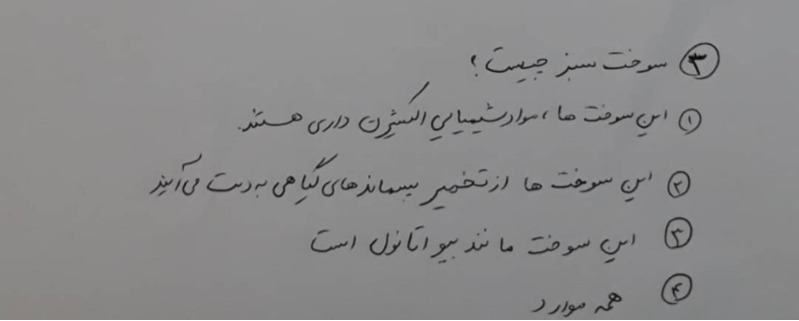 ۳ سوخت سبز چیست؟
۱ این سوخت ها، مواد شیمیایی اکسیژن داری هستند.
۲ این سوخت ها از تخمیر پسماندهای گیاهی به دست می آیند
۳ این سوخت مانند بیو اتانول است
۴ همه موارد